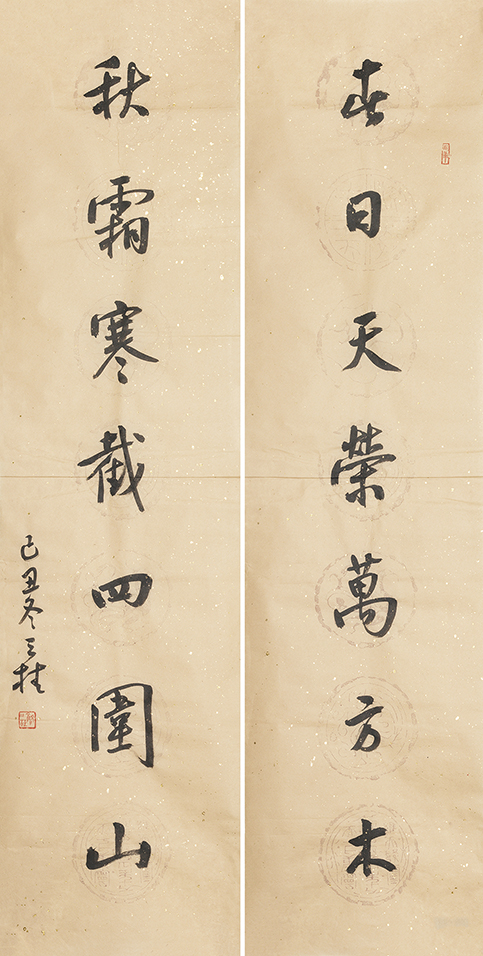 春日天榮萬方木
秋霜寒截四圍山
己丑冬桂